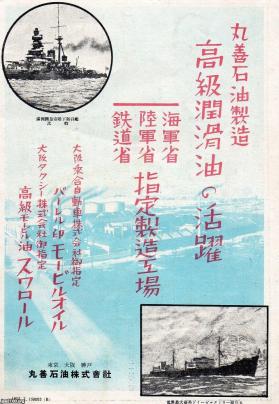 丸善石油製造
高級潤滑油の活躍
海軍省
陸軍省
鉄道省
指定製造工場
大阪乗合自動車株式会社御指定
バーレル印モービルオイル
大阪タクシー株式会社御指定
高級モビル油スワロール
東京 大阪 神戸
丸善石油株式會社